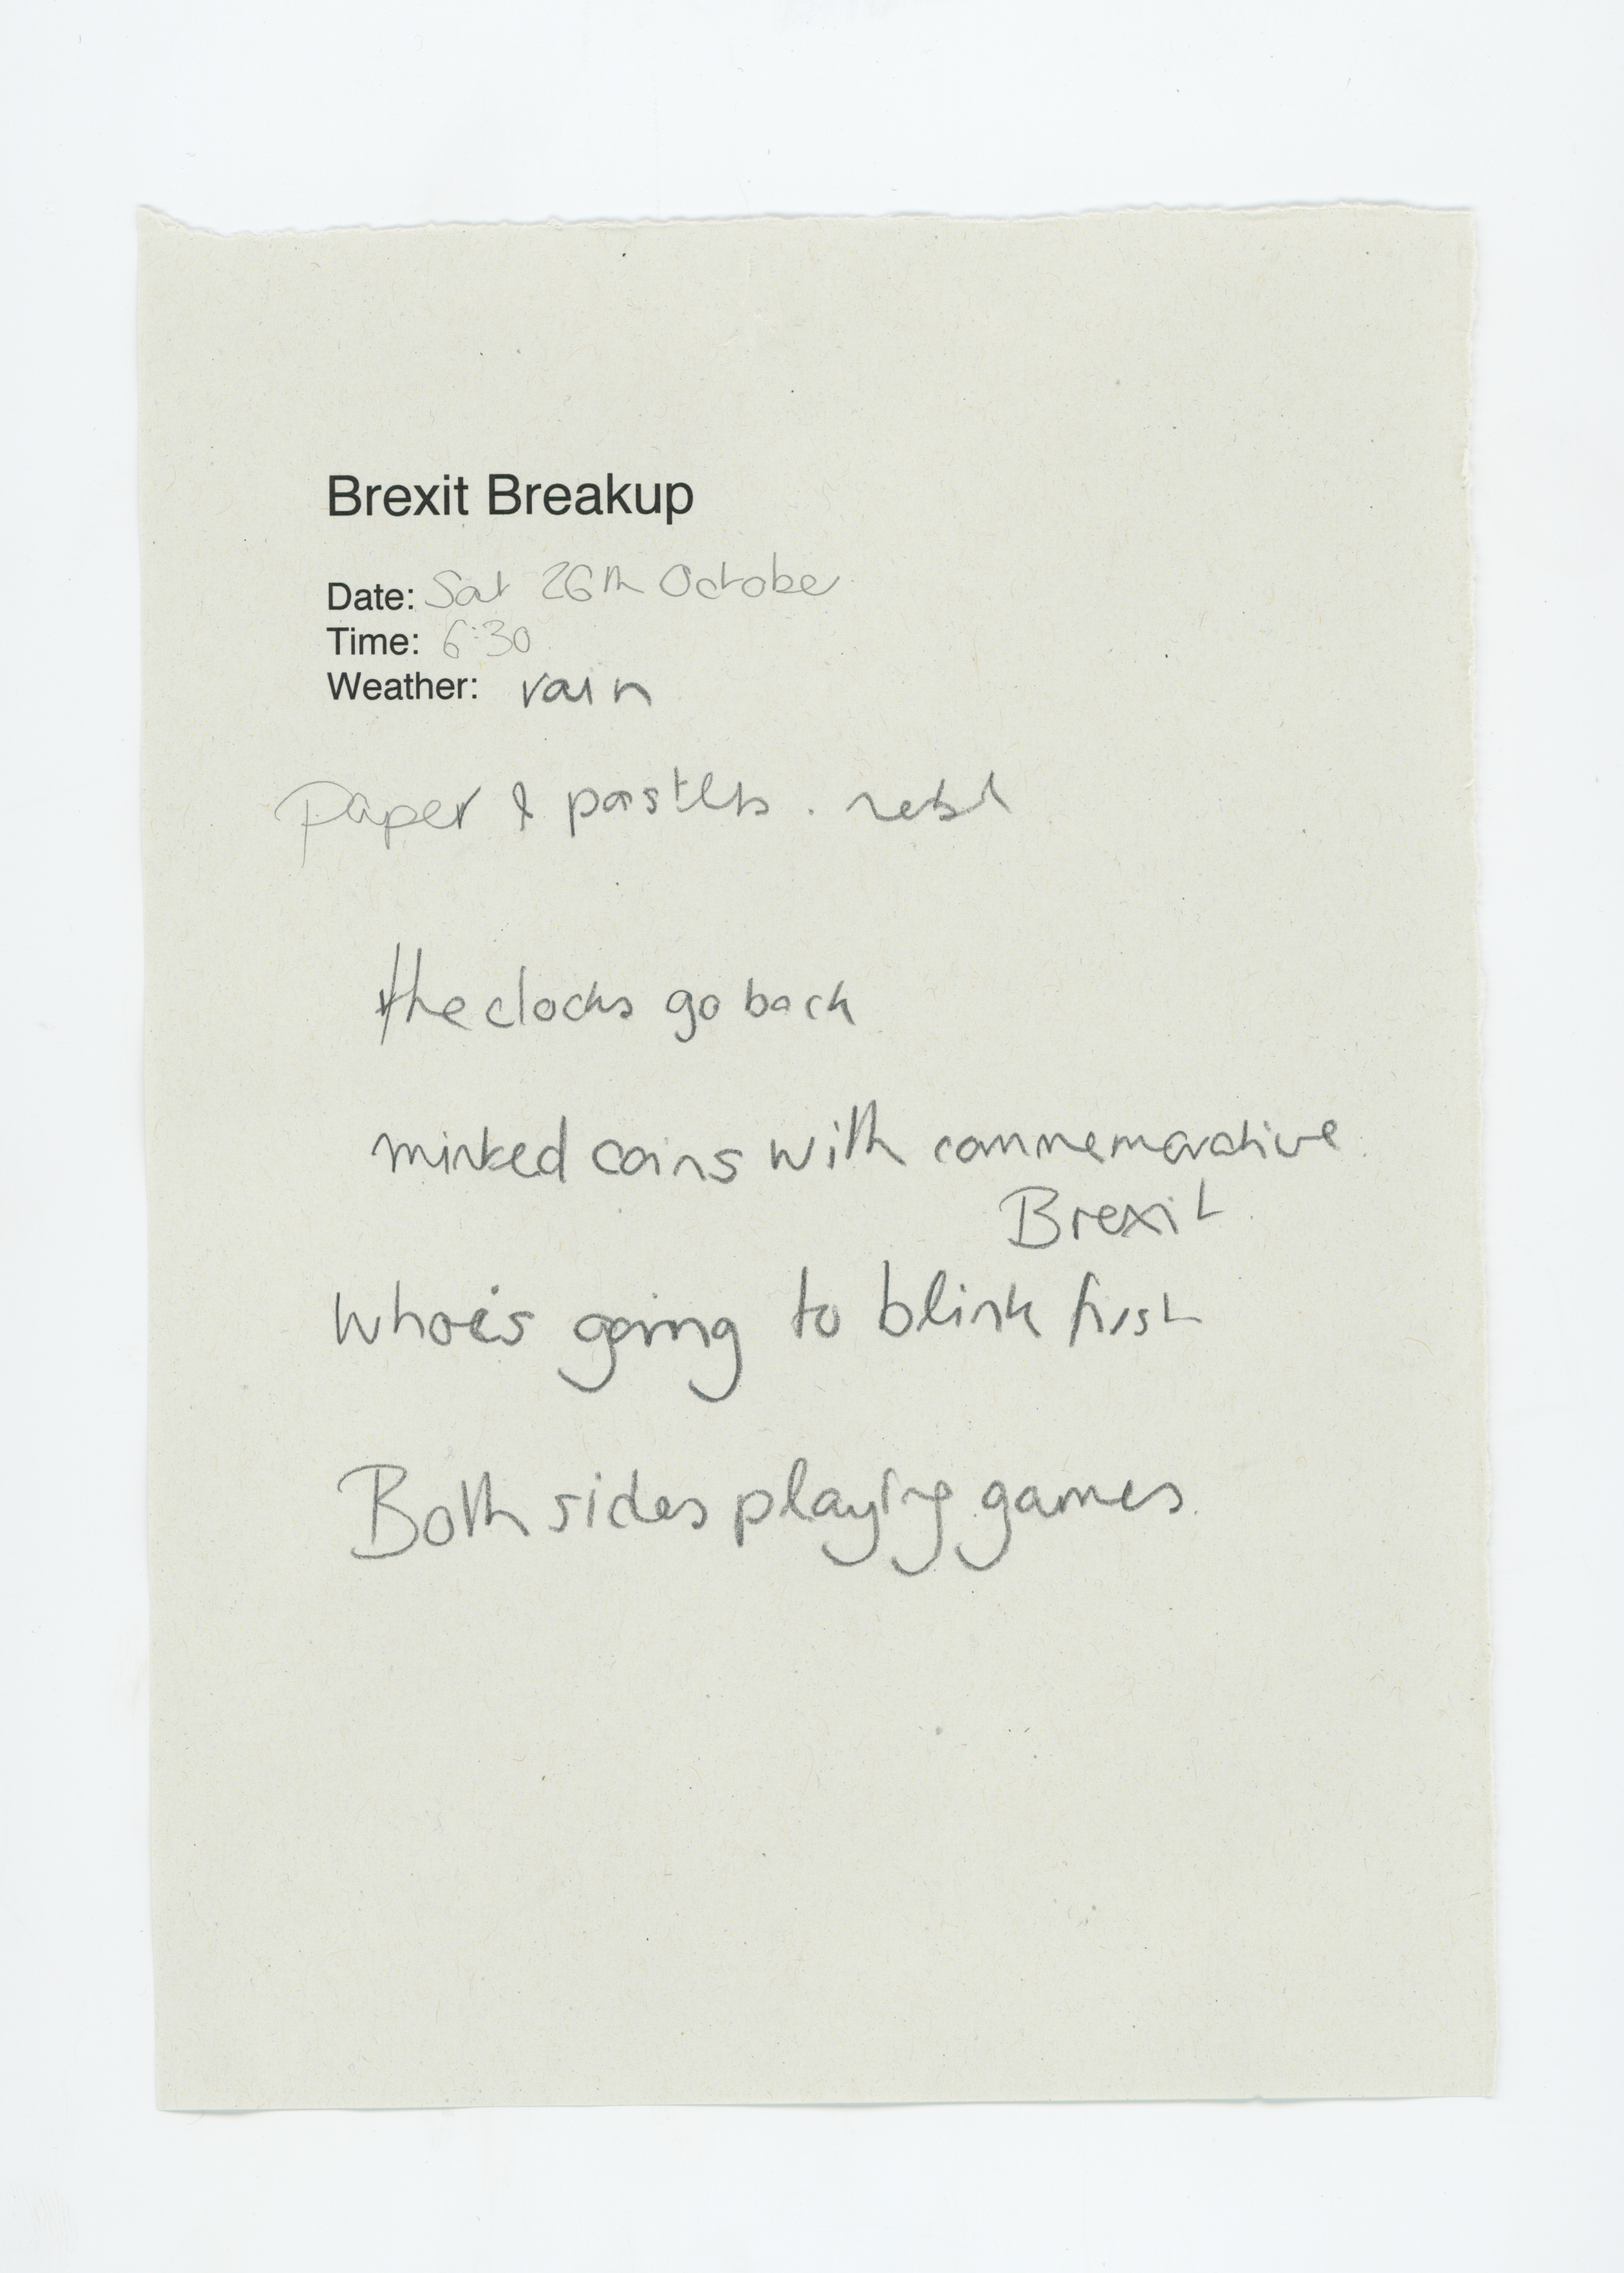 Brexit Breakup
Date: Sat 26th October
Time: 6:30
Weather: rain
Paper & pastels.
the clocks go back
minted coins with commemorative
Brexit
who's going to blink first
Both sides playing games.